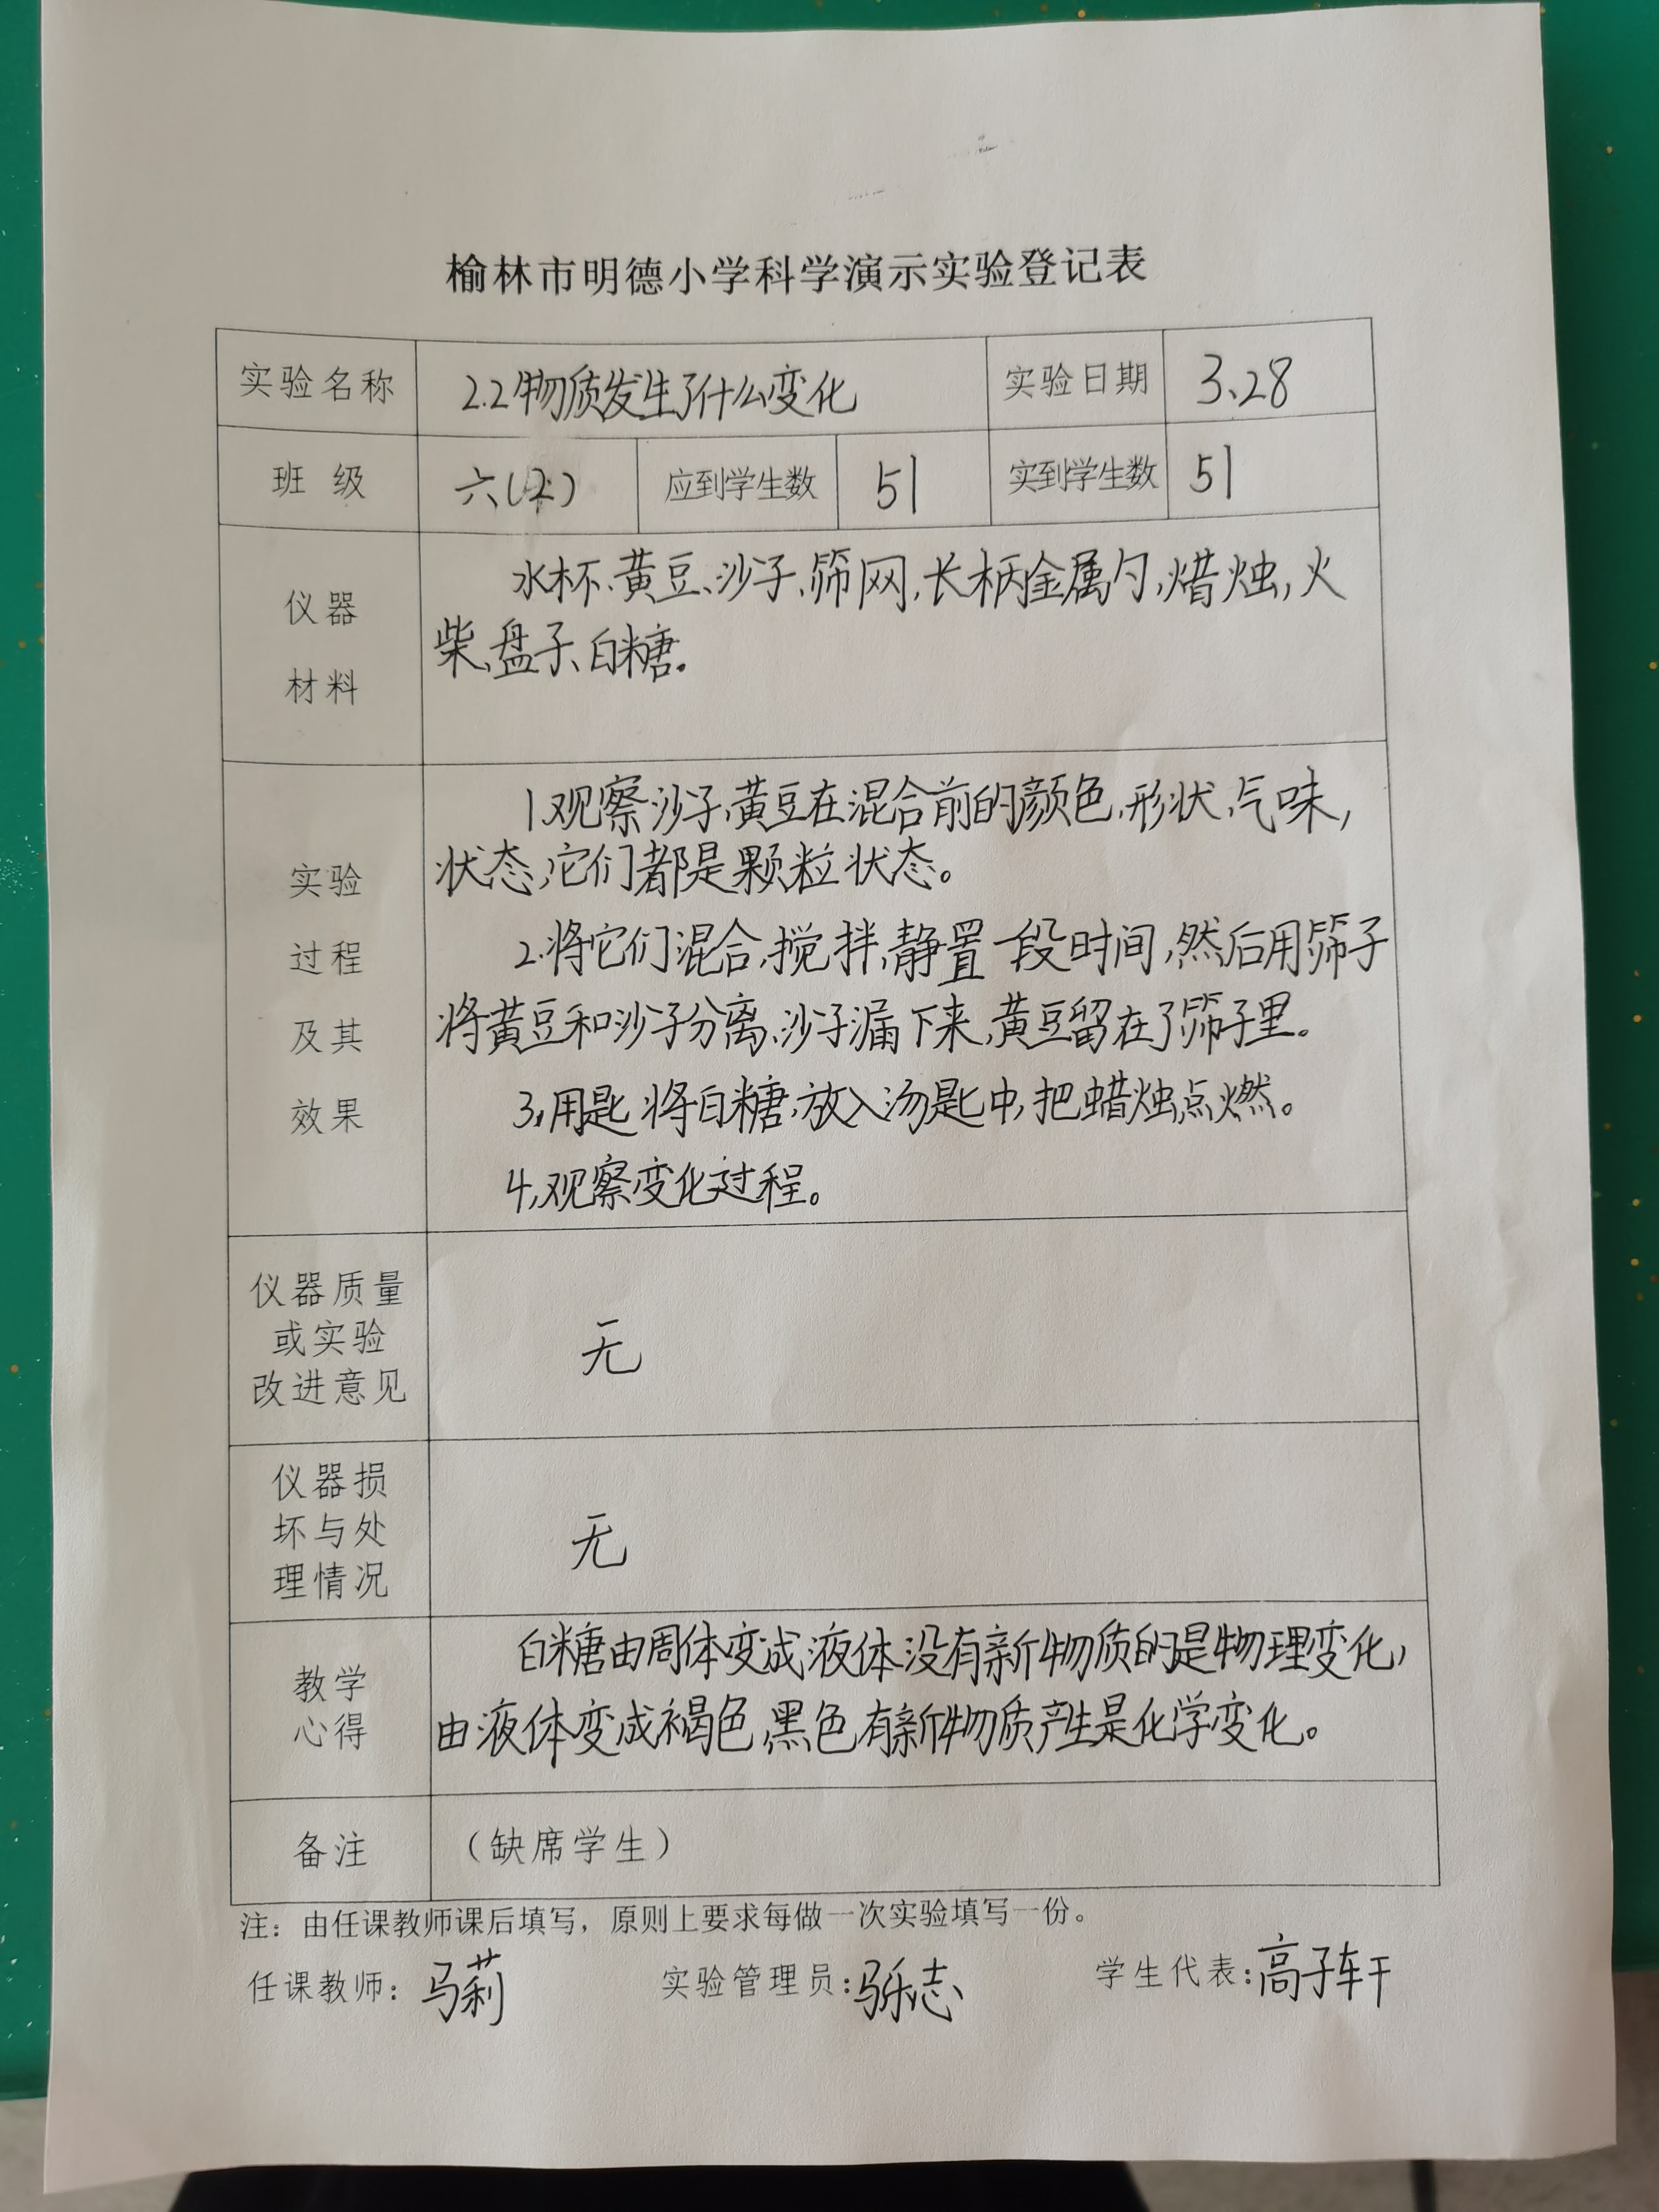 榆林市明德小学科学演示实验登记表
实验名称 2.2物质发生了什么变化 实验日期 3、28
班 级 六(2) 应到学生数 51 实到学生数 51
仪器
材料
水杯、黄豆、沙子、筛网,长柄金属勺,蜡烛,火
柴、盘子、白糖。
实验
过程
及其
效果
1.观察沙子,黄豆在混合前的颜色,形状,气味,
状态,它们都是颗粒状态。
2.将它们混合,搅拌,静置一段时间,然后用筛子
将黄豆和沙子分离,沙子漏下来,黄豆留在了筛子里。
3,用匙将白糖,放入汤匙中,把蜡烛点燃。
4,观察变化过程。
仪器质量
或实验
改进意见
无
仪器损
坏与处
理情况
无
教学
心得
白糖由周体变成液体没有新物质的是物理变化,
由液体变成褐色,黑色有新物质产生是化学变化。
备注 (缺席学生)
注:由任课教师课后填写,原则上要求每做一次实验填写一份。
任课教师:马莉 实验管理员: 学生代表:高子轩